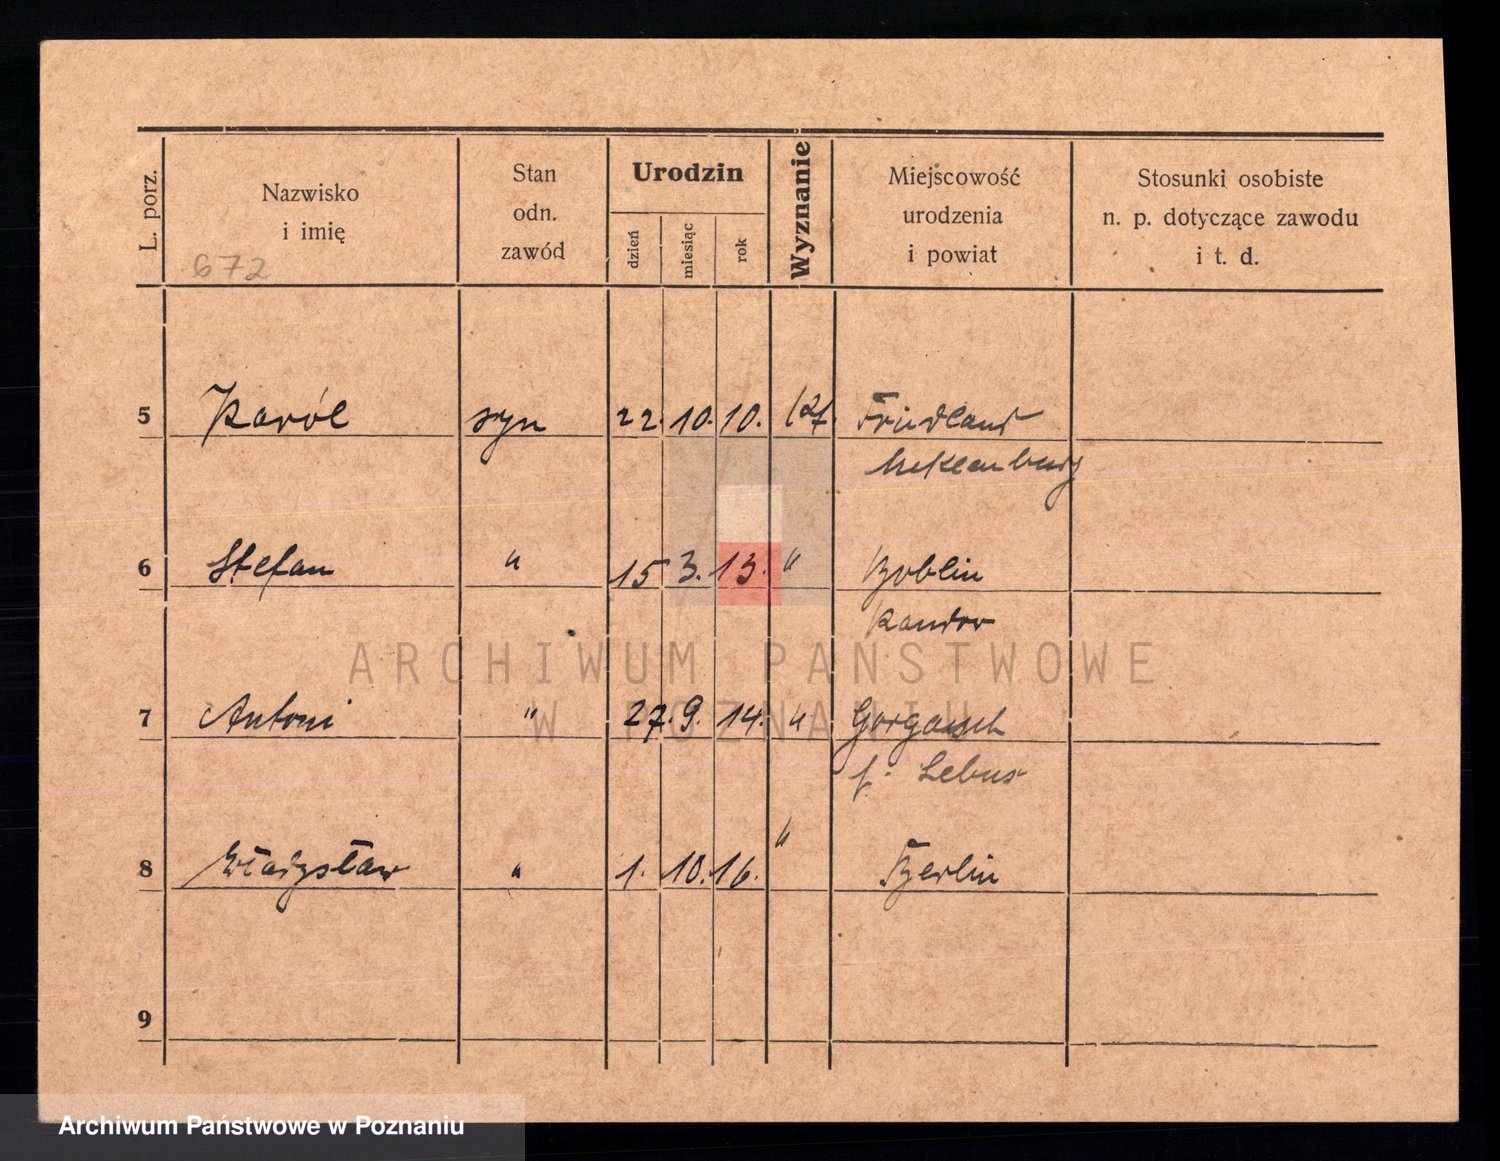 L. porz.
Nazwisko
i imię
Stan
odn.
zawód
Urodzin
dzień
miesiąc
rok
Wyznanie
Miejscowość
urodzenia
i powiat
Stosunki osobiste
n. p. dotyczące zawodu
i t. d.
672
5 Karól syn 22. 10. 10. kt. Friedland
Meklenburg
6 Stefan " 15 3. 13. " Boblin
Randow
7 Antoni " 27. 9. 14. " Gorgassch
f. Lebus
8 Władysław " 1. 10. 16. " Berlin
9
ARCHIWUM PAŃSTWOWE
W POZNANIU
Archiwum Państwowe w Poznaniu